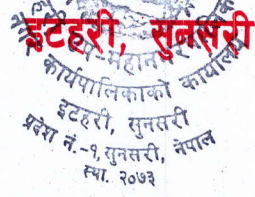 इटहरी, सुनसरी
कार्यपालिकाको कार्यालय
इटहरी, सुनसरी
प्रदेश नं.-१, सुनसरी, नेपाल
स्था. २०७३